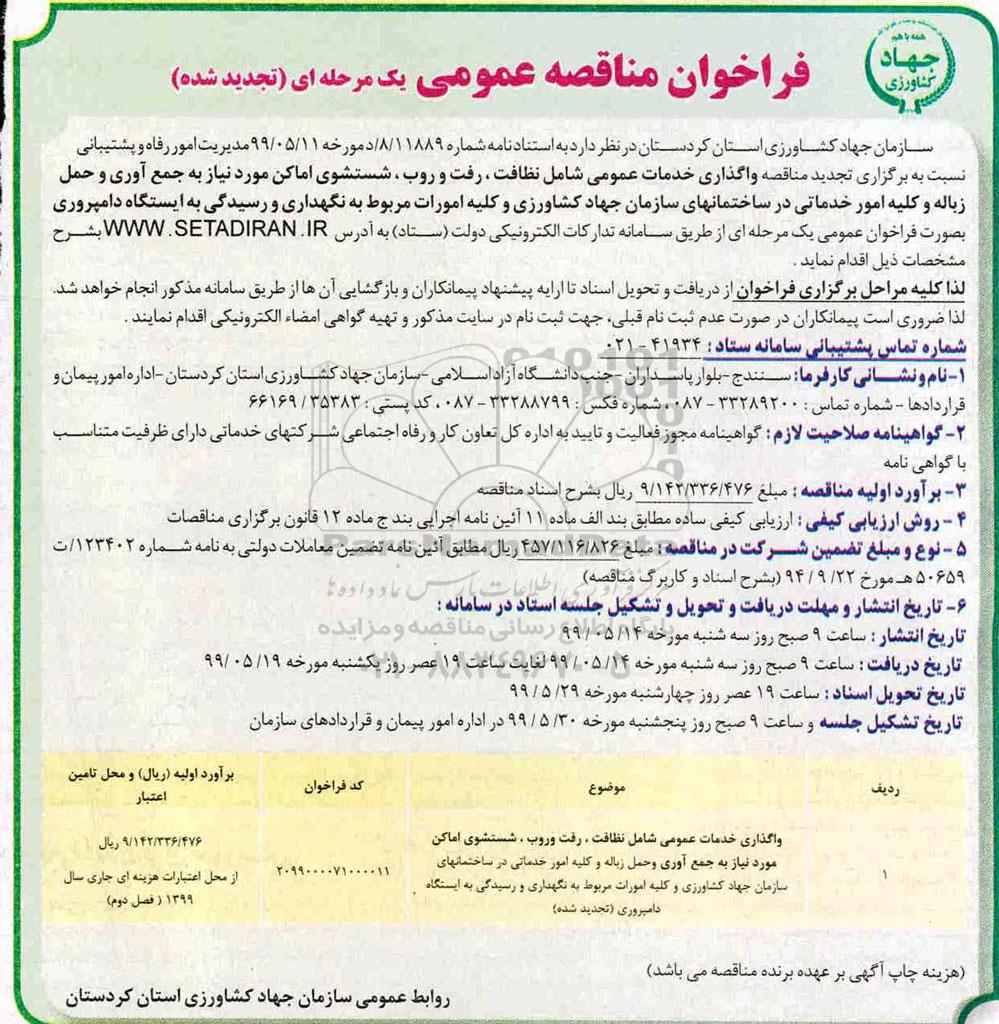 همه با هم
جهاد
کشاورزی
فراخوان مناقصه عمومی یک مرحله ای (تجدید شده)
سازمان جهاد کشاورزی استان کردستان در نظر دارد به استناد نامه شماره ۸/۱۱۸۸۹/د مورخه ۹۹/۰۵/۱۱ مدیریت امور رفاه و پشتیبانی
نسبت به برگزاری تجدید مناقصه واگذاری خدمات عمومی شامل نظافت ، رفت و روب ، شستشوی اماکن مورد نیاز به جمع آوری و حمل
زباله و کلیه امور خدماتی در ساختمانهای سازمان جهاد کشاورزی و کلیه امورات مربوط به نگهداری و رسیدگی به ایستگاه دامپروری
بصورت فراخوان عمومی یک مرحله ای از طریق سامانه تدارکات الکترونیکی دولت (ستاد) به آدرس WWW.SETADIRAN.IR بشرح
مشخصات ذیل اقدام نماید .
لذا کلیه مراحل برگزاری فراخوان از دریافت و تحویل اسناد تا ارایه پیشنهاد پیمانکاران و بازگشایی آن ها از طریق سامانه مذکور انجام خواهد شد.
لذا ضروری است پیمانکاران در صورت عدم ثبت نام قبلی، جهت ثبت نام در سایت مذکور و تهیه گواهی امضاء الکترونیکی اقدام نمایند .
شماره تماس پشتیبانی سامانه ستاد : ۴۱۹۳۴ - ۰۲۱
۱- نام و نشانی کارفرما: سنندج - بلوار پاسداران - جنب دانشگاه آزاد اسلامی - سازمان جهاد کشاورزی استان کردستان - اداره امور پیمان و
قراردادها - شماره تماس : ۳۳۲۸۹۲۰۰ - ۰۸۷ ، شماره فکس : ۳۳۲۸۸۷۹۹ - ۰۸۷ ، کد پستی : ۳۵۳۸۳ / ۶۶۱۶۹
۲- گواهینامه صلاحیت لازم : گواهینامه مجوز فعالیت و تایید به اداره کل تعاون کار و رفاه اجتماعی شرکتهای خدماتی دارای ظرفیت متناسب
با گواهی نامه
۳- برآورد اولیه مناقصه : مبلغ ۹/۱۴۲/۳۳۶/۴۷۶ ریال بشرح اسناد مناقصه
۴- روش ارزیابی کیفی : ارزیابی کیفی ساده مطابق بند الف ماده ۱۱ آئین نامه اجرایی بند ج ماده ۱۲ قانون برگزاری مناقصات
۵- نوع و مبلغ تضمین شرکت در مناقصه : مبلغ ۴۵۷/۱۱۶/۸۲۶ ریال مطابق آئین نامه تضمین معاملات دولتی به نامه شماره ۱۲۳۴۰۲/ ت
۵۰۶۵۹ هـ مورخ ۲۲/ ۹ / ۹۴ (بشرح اسناد و کاربرگ مناقصه)
۶- تاریخ انتشار و مهلت دریافت و تحویل و تشکیل جلسه اسناد در سامانه :
تاریخ انتشار : ساعت ۹ صبح روز سه شنبه مورخه ۱۴/ ۰۵ / ۹۹
تاریخ دریافت : ساعت ۹ صبح روز سه شنبه مورخه ۱۴/ ۰۵ / ۹۹ لغایت ساعت ۱۹ عصر روز یکشنبه مورخه ۱۹/ ۰۵ / ۹۹
تاریخ تحویل اسناد : ساعت ۱۹ عصر روز چهارشنبه مورخه ۲۹/ ۵ / ۹۹
تاریخ تشکیل جلسه و ساعت ۹ صبح روز پنجشنبه مورخه ۳۰/ ۵ / ۹۹ در اداره امور پیمان و قراردادهای سازمان
پایگاه اطلاع رسانی مناقصه و مزایده
ردیف
موضوع
کد فراخوان
برآورد اولیه (ریال) و محل تامین
اعتبار
۱
واگذاری خدمات عمومی شامل نظافت ، رفت وروب ، شستشوی اماکن
مورد نیاز به جمع آوری وحمل زباله و کلیه امور خدماتی در ساختمانهای
سازمان جهاد کشاورزی و کلیه امورات مربوط به نگهداری و رسیدگی به ایستگاه
دامپروری (تجدید شده)
۲۰۹۹۰۰۰۰۷۱۰۰۰۰۱۱
۹/۱۴۲/۳۳۶/۴۷۶ ریال
از محل اعتبارات هزینه ای جاری سال
۱۳۹۹ ( فصل دوم)
(هزینه چاپ آگهی بر عهده برنده مناقصه می باشد)
روابط عمومی سازمان جهاد کشاورزی استان کردستان